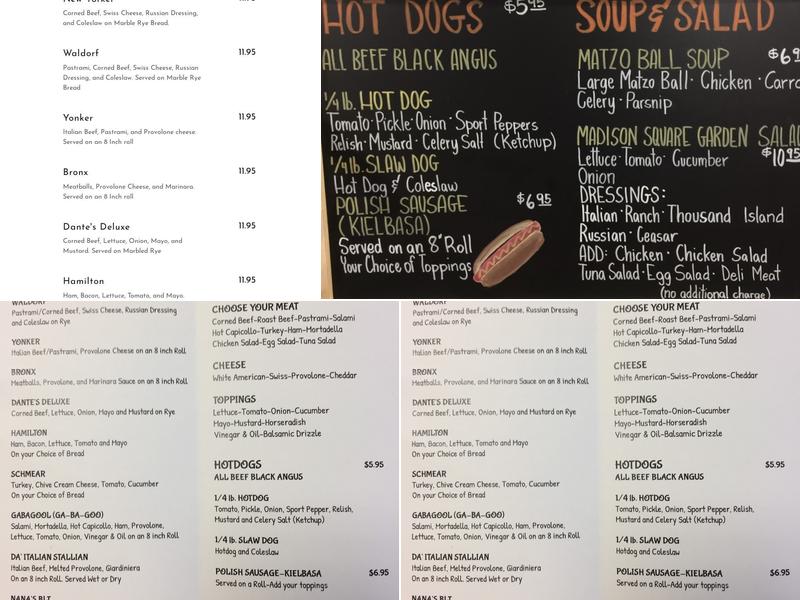 New Yorker 11.95
Corned Beef, Swiss Cheese, Russian Dressing,
and Coleslaw on Marble Rye Bread.
Waldorf 11.95
Pastrami, Corned Beef, Swiss Cheese, Russian
Dressing, and Coleslaw. Served on Marble Rye
Bread
Yonker 11.95
Italian Beef, Pastrami, and Provolone cheese.
Served on an 8 Inch roll
Bronx 11.95
Meatballs, Provolone Cheese, and Marinara.
Served on an 8 Inch roll
Dante's Deluxe 11.95
Corned Beef, Lettuce, Onion, Mayo, and
Mustard. Served on Marbled Rye
Hamilton 11.95
Ham, Bacon, Lettuce, Tomato, and Mayo.
HOT DOGS $5.95
ALL BEEF BLACK ANGUS
1/4 lb. HOT DOG
Tomato·Pickle·Onion·Sport Peppers
Relish·Mustard·Celery Salt (Ketchup)
1/4 lb. SLAW DOG
Hot Dog & Coleslaw
POLISH SAUSAGE $6.95
(KIELBASA)
Served on an 8" Roll
Your Choice of Toppings
SOUP & SALAD
MATZO BALL SOUP
Large Matzo Ball · Chicken ·
Celery · Parsnip
MADISON SQUARE GARDEN
Lettuce·Tomato· Cucumber $10.95
Onion
DRESSINGS:
Italian·Ranch·Thousand Island
Russian· Ceasar
ADD: Chicken · Chicken Salad
Tuna Salad·Egg Salad· Deli Meat
(no additional charge)
WALDORF
Pastrami/Corned Beef, Swiss Cheese, Russian Dressing
and Coleslaw on Rye
YONKER
Italian Beef/Pastrami, Provolone Cheese on an 8 inch Roll
BRONX
Meatballs, Provolone, and Marinara Sauce on an 8 inch Roll
DANTE'S DELUXE
Corned Beef, Lettuce, Onion, Mayo and Mustard on Rye
HAMILTON
Ham, Bacon, Lettuce, Tomato and Mayo
On your Choice of Bread
SCHMEAR
Turkey, Chive Cream Cheese, Tomato, Cucumber
On your Choice of Bread
GABAGOOL (GA-BA-GOO)
Salami, Mortadella, Hot Capicollo, Ham, Provolone,
Lettuce, Tomato, Onion, Vinegar & Oil on an 8 inch Roll
DA' ITALIAN STALLIAN
Italian Beef, Melted Provolone, Giardiniera
On an 8 inch Roll. Served Wet or Dry
NANA'S BLT
CHOOSE YOUR MEAT
Corned Beef-Roast Beef-Pastrami-Salami
Hot Capicollo-Turkey-Ham-Mortadella
Chicken Salad-Egg Salad-Tuna Salad
CHEESE
White American-Swiss-Provolone-Cheddar
TOPPINGS
Lettuce-Tomato-Onion-Cucumber
Mayo-Mustard-Horseradish
Vinegar & Oil-Balsamic Drizzle
HOTDOGS $5.95
ALL BEEF BLACK ANGUS
1/4 lb. HOTDOG
Tomato, Pickle, Onion, Sport Pepper, Relish,
Mustard and Celery Salt (Ketchup)
1/4 lb. SLAW DOG
Hotdog and Coleslaw
POLISH SAUSAGE-KIELBASA $6.95
Served on a Roll-Add your toppings
WALDORF
Pastrami/Corned Beef, Swiss Cheese, Russian Dressing
and Coleslaw on Rye
YONKER
Italian Beef/Pastrami, Provolone Cheese on an 8 inch Roll
BRONX
Meatballs, Provolone, and Marinara Sauce on an 8 inch Roll
DANTE'S DELUXE
Corned Beef, Lettuce, Onion, Mayo and Mustard on Rye
HAMILTON
Ham, Bacon, Lettuce, Tomato and Mayo
On your Choice of Bread
SCHMEAR
Turkey, Chive Cream Cheese, Tomato, Cucumber
On your Choice of Bread
GABAGOOL (GA-BA-GOO)
Salami, Mortadella, Hot Capicollo, Ham, Provolone,
Lettuce, Tomato, Onion, Vinegar & Oil on an 8 inch Roll
DA' ITALIAN STALLIAN
Italian Beef, Melted Provolone, Giardiniera
On an 8 inch Roll. Served Wet or Dry
NANA'S BLT
CHOOSE YOUR MEAT
Corned Beef-Roast Beef-Pastrami-Salami
Hot Capicollo-Turkey-Ham-Mortadella
Chicken Salad-Egg Salad-Tuna Salad
CHEESE
White American-Swiss-Provolone-Cheddar
TOPPINGS
Lettuce-Tomato-Onion-Cucumber
Mayo-Mustard-Horseradish
Vinegar & Oil-Balsamic Drizzle
HOTDOGS $5.95
ALL BEEF BLACK ANGUS
1/4 lb. HOTDOG
Tomato, Pickle, Onion, Sport Pepper, Relish,
Mustard and Celery Salt (Ketchup)
1/4 lb. SLAW DOG
Hotdog and Coleslaw
POLISH SAUSAGE-KIELBASA $6.95
Served on a Roll-Add your toppings